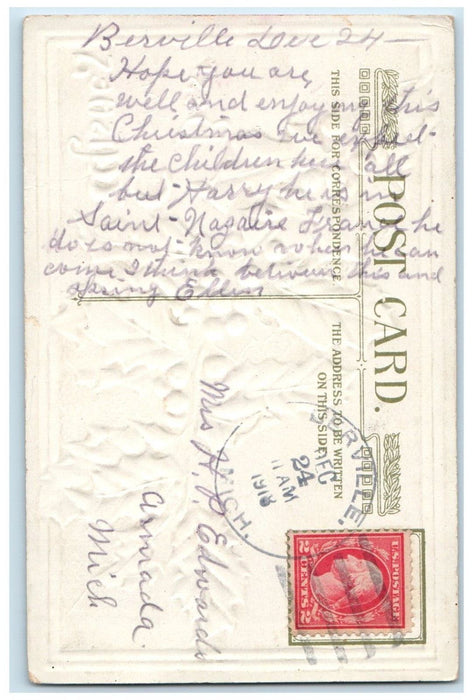 Berville Dec 24 —
Hope you are
well and enjoying this
Christmas we expect
the children here all
but Harry he is in
Saint Nazaire he
does not know when he can
come I think between this and
spring Ellen
POST CARD.
THIS SIDE FOR CORRESPONDENCE
THE ADDRESS TO BE WRITTEN
ON THIS SIDE
BERVILLE.
DEC
24
11 AM
1918
MICH.
U.S. POSTAGE
2 CENTS 2
Mrs H Edwards
Armada
Mich